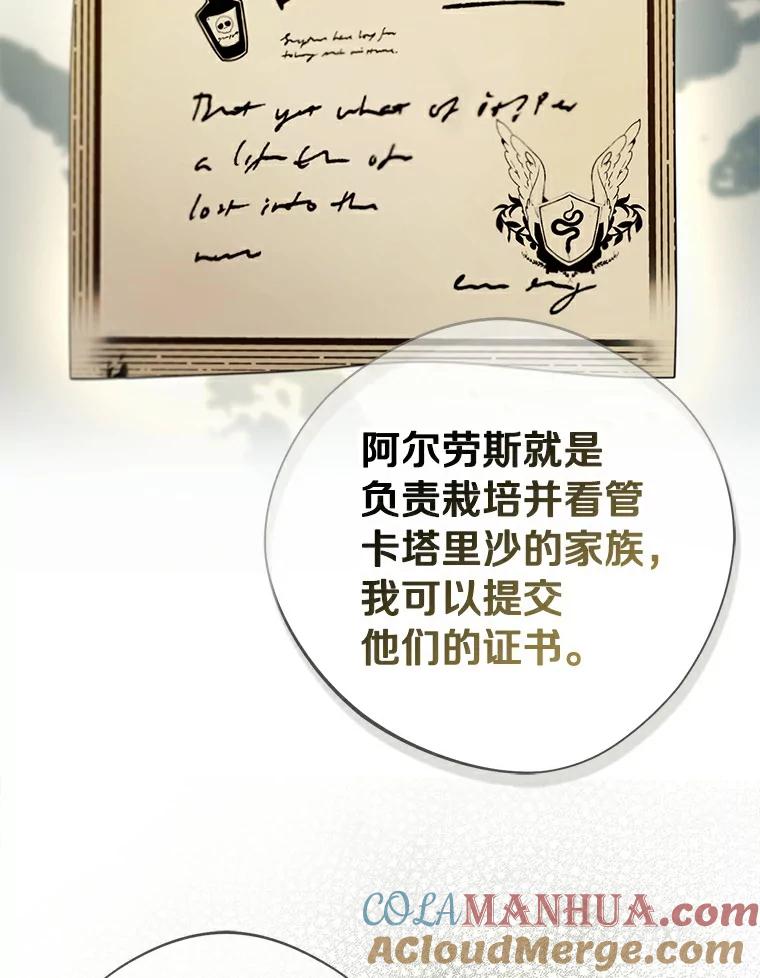 That yet what of it? Per
a
lost into the
阿尔劳斯就是
负责栽培并看管
卡塔里沙的家族，
我可以提交
他们的证书。
COLAMANHUA.com
ACloudMerge.com